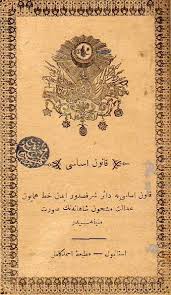 قانون اساسی
قانون اساسی یه دائر شرفصدور ایدن خط همایون
عدالت مشحون شاهانه‌نك صورت
منیفه‌سیدر
استانبول — مطبعهٔ احمد کامل